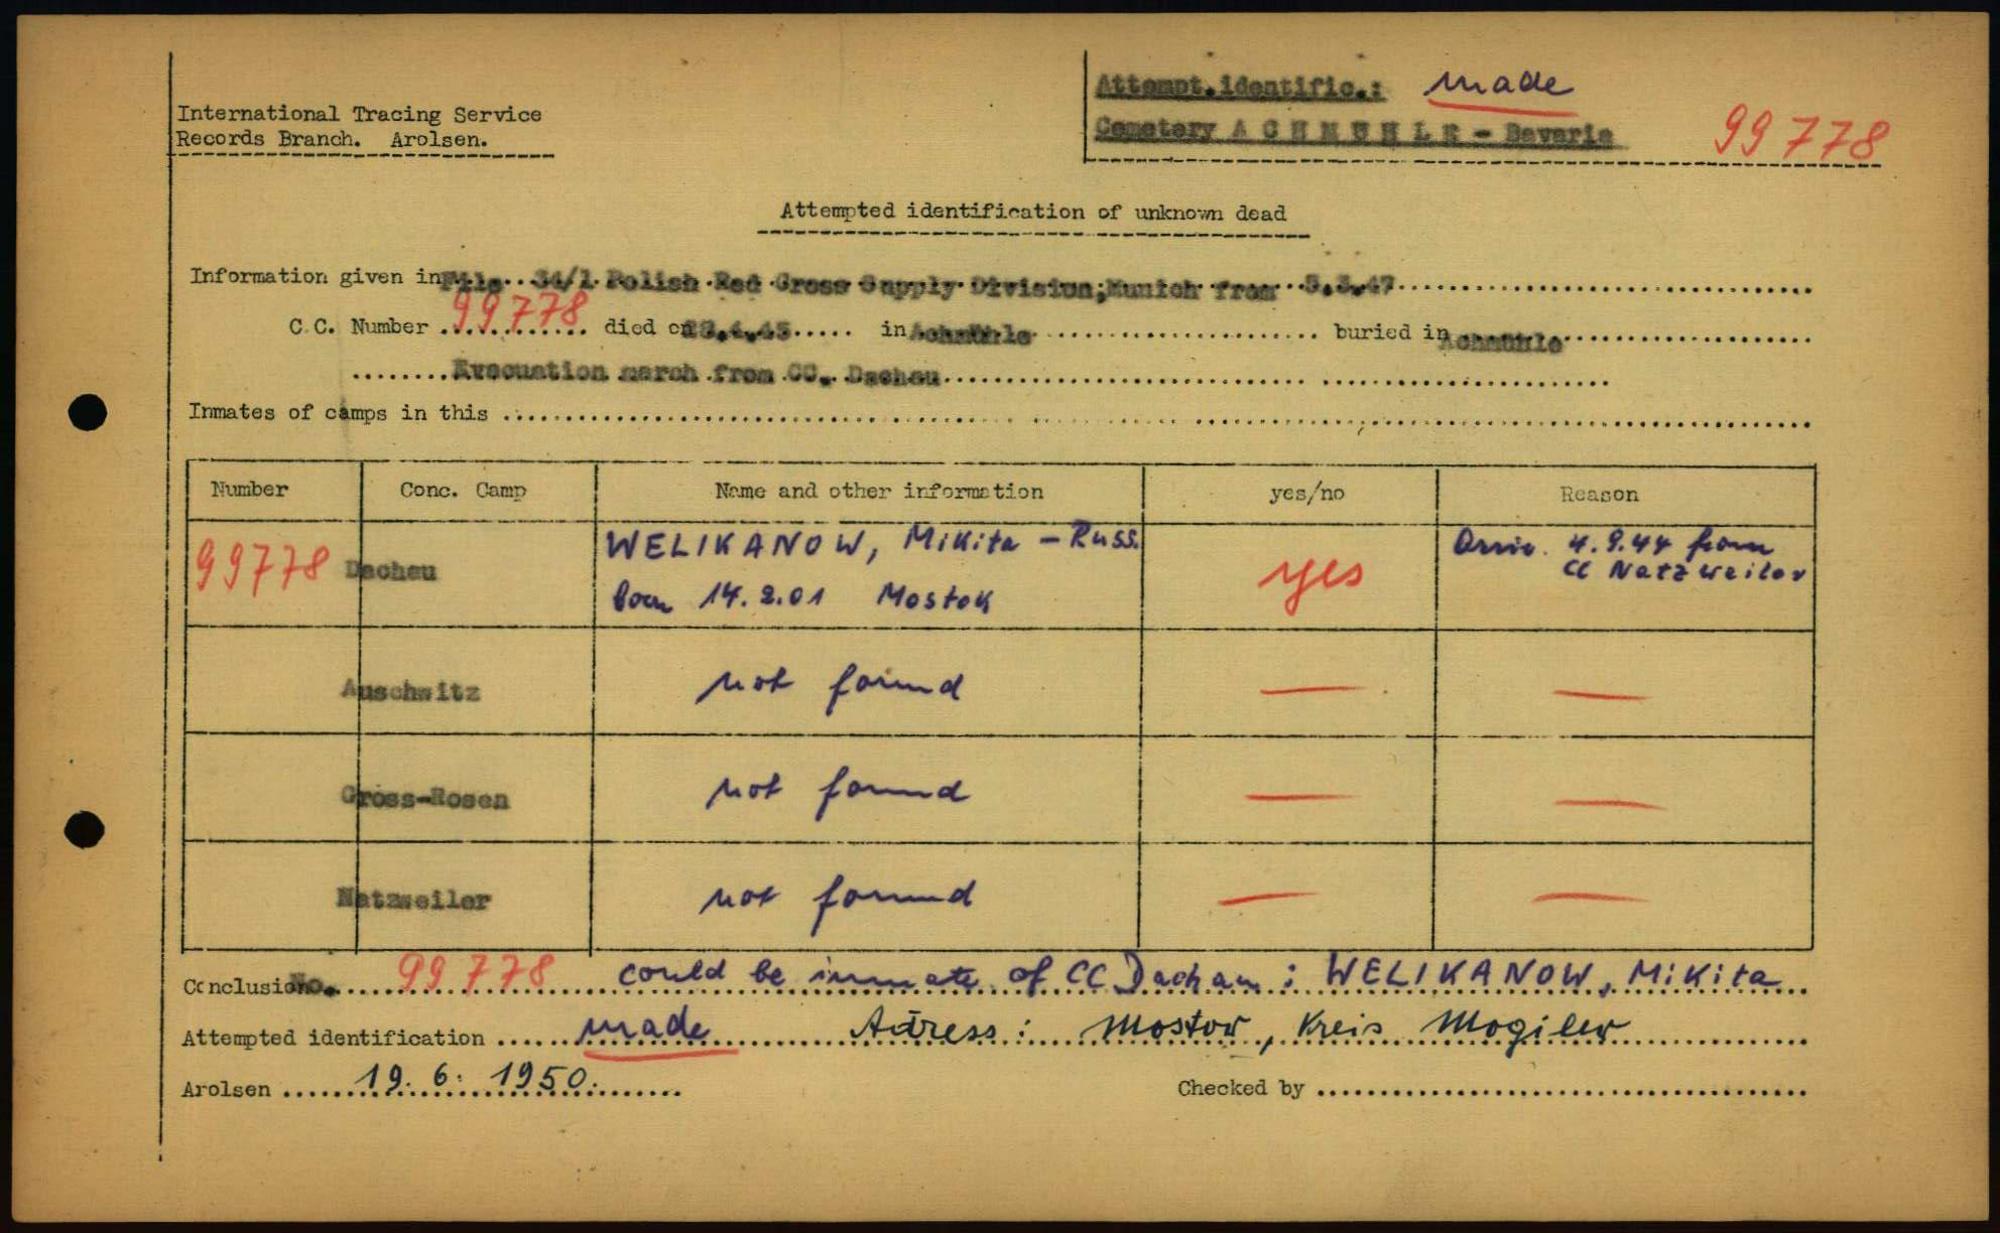 International Tracing Service
Records Branch. Arolsen.
Attempt.identific.: made
Cemetery A C H M U E H L E - Bavaria 99778
Attempted identification of unknown dead
Information given in File 34/1 Polish Red Cross Supply Division, Munich from 3.3.47
C.C. Number 99778 died on .4.45 in Achmühle buried in Achmühle
Evacuation march from CC. Dachau
Inmates of camps in this
Number Conc. Camp Name and other information yes/no Reason
99778 Dachau WELIKANOW, Mikita - Russ. yes Arriv. 4.9.44 from
CC Natzweiler
born 14.2.01 Mostok
Auschwitz not found — —
Gross-Rosen not found — —
Natzweiler not found — —
Conclusion No. 99778 could be inmate of CC Dachau: WELIKANOW, Mikita
Attempted identification made Adress: Mostow, Kreis Mogilew
Arolsen 19.6.1950. Checked by